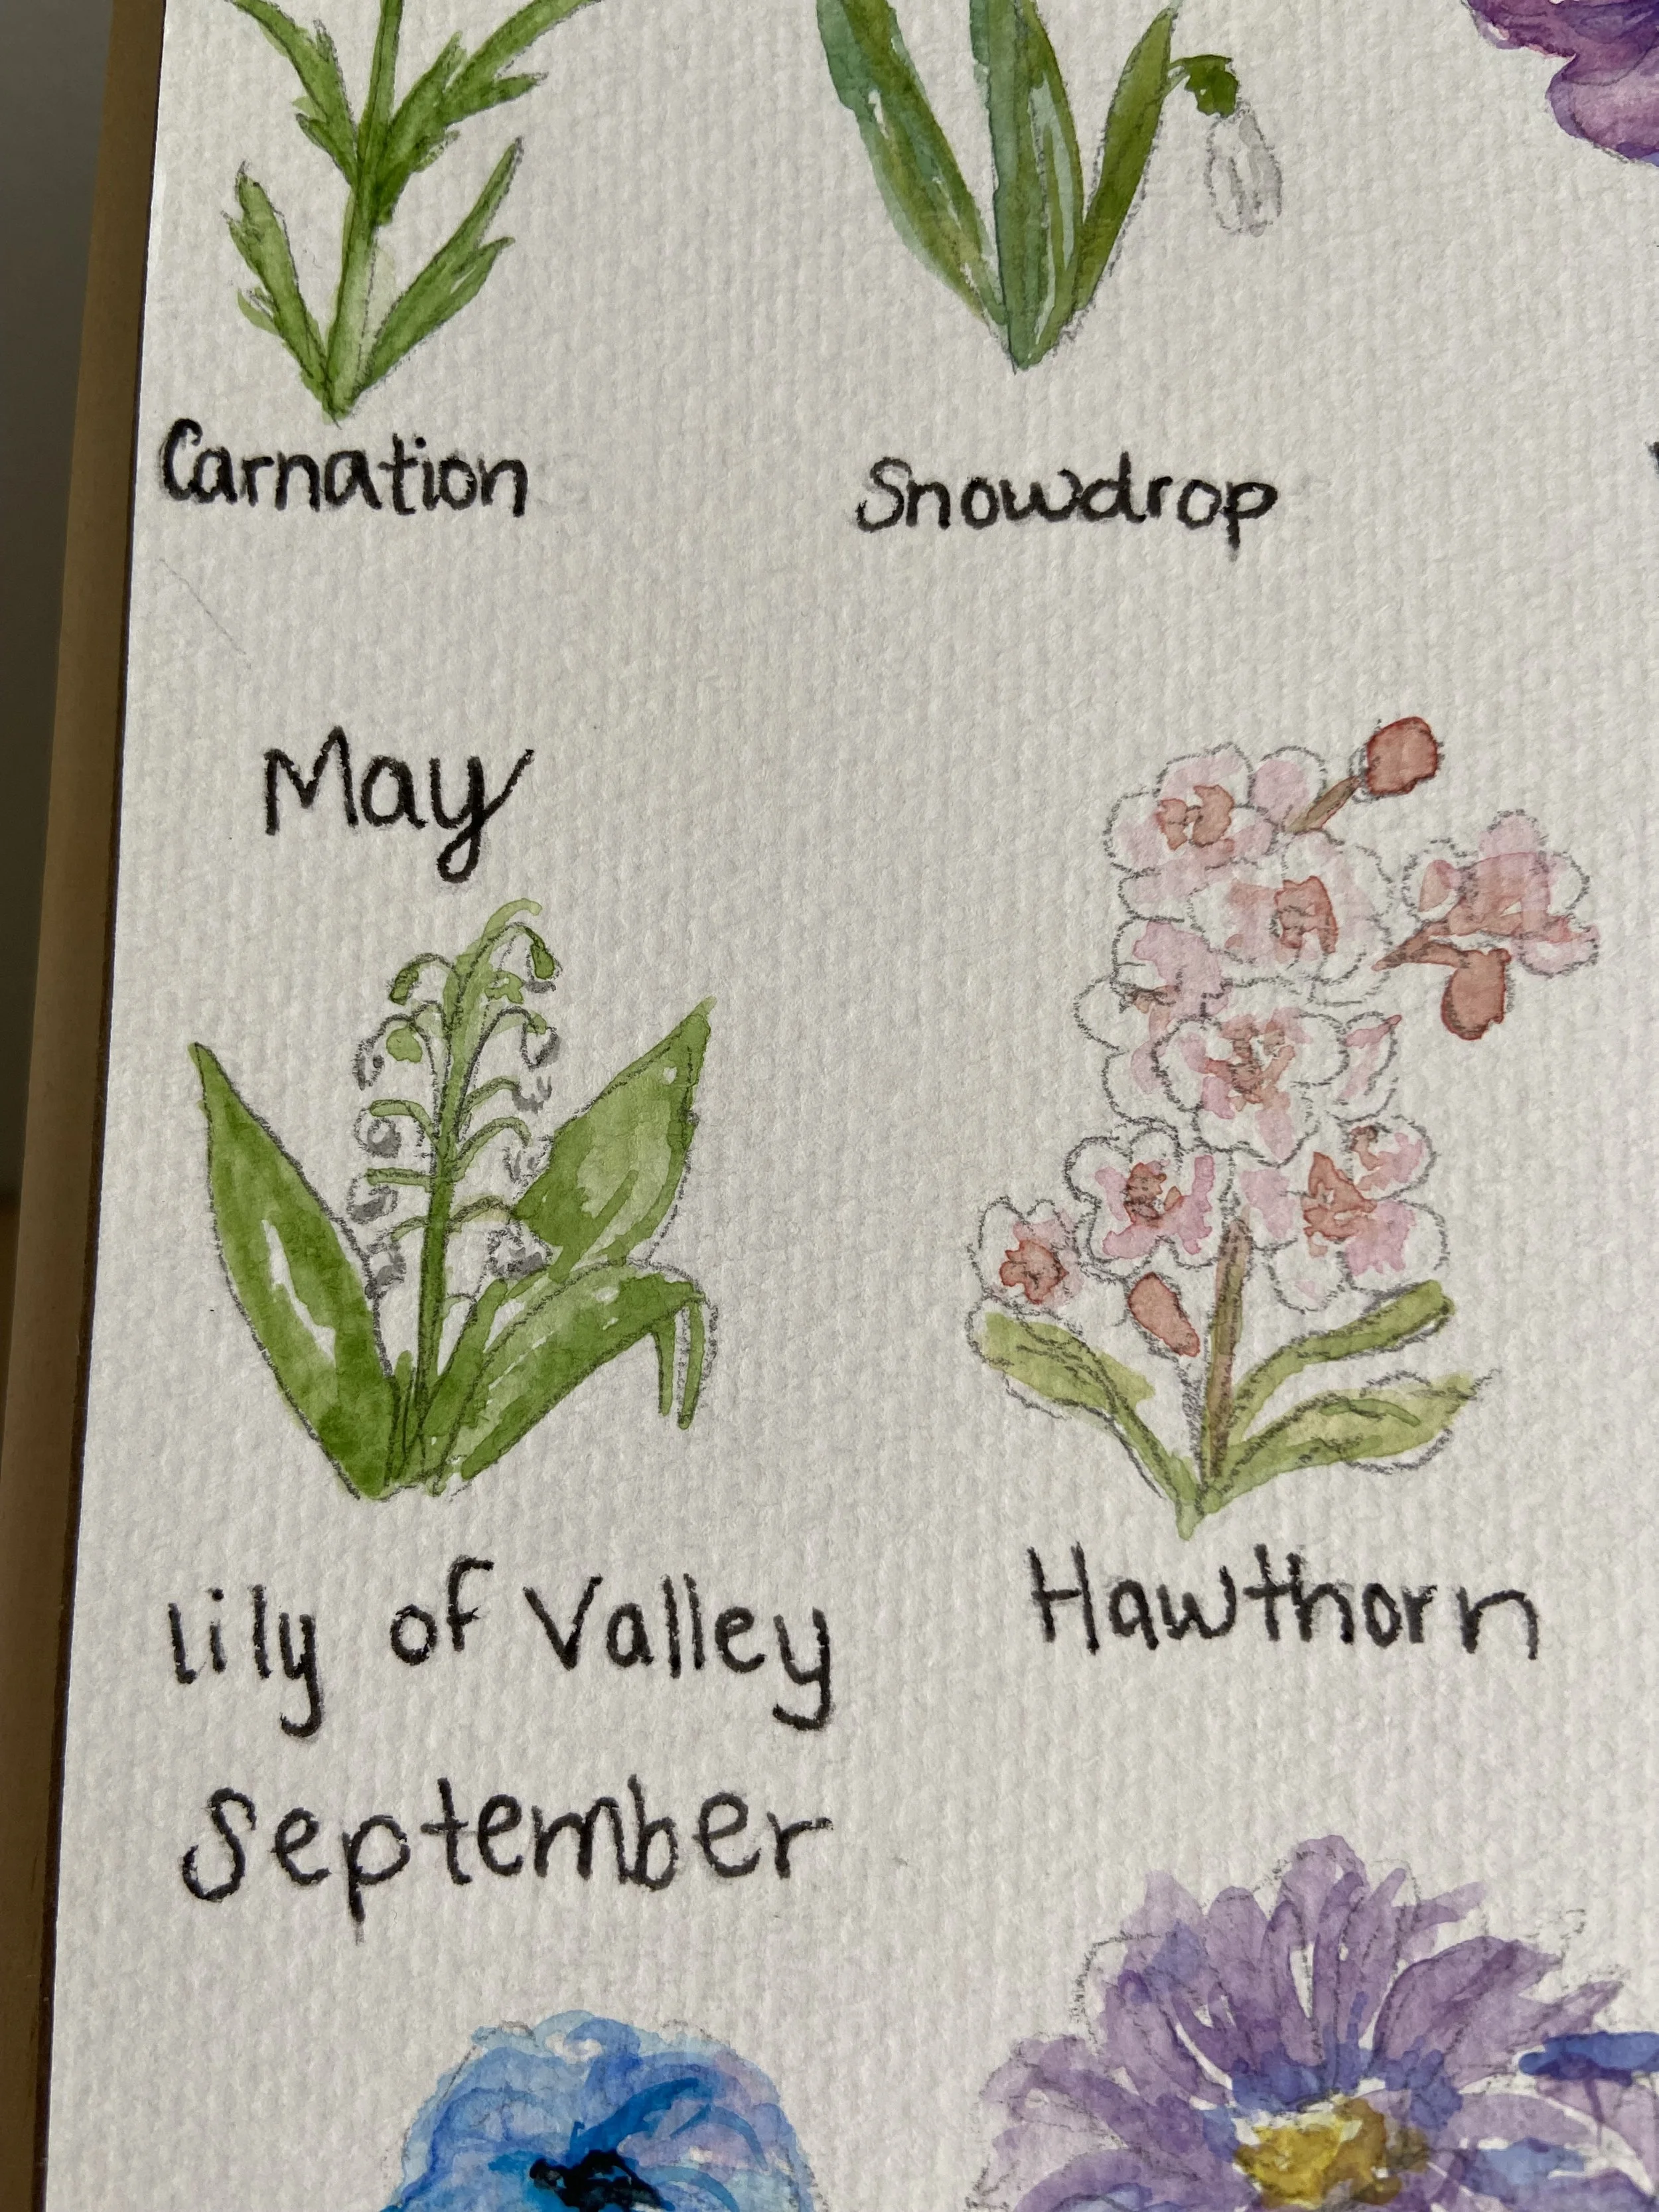 Carnation
Snowdrop
May
lily of Valley
Hawthorn
September